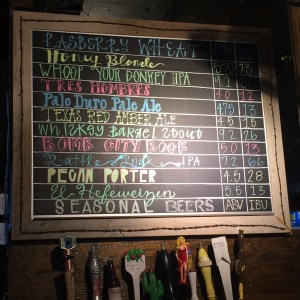 RASBERRY WHEAT
Honey Blonde
WHOOP YOUR DONKEY IIPA 9.2
TRES HOMBRES 4.0 12
Palo Duro Pale Ale 4.75
TEXAS RED AMBER ALE 4.5
Whi2key Barrel Stout 9.2 26
BOMB CITY BOCK 5.0 13
Rattle Sock IPA 7.2 66
PECAN PORTER 4.5 28
El Hefeweizen 5.5 13
SEASONAL BEERS ABV IBU